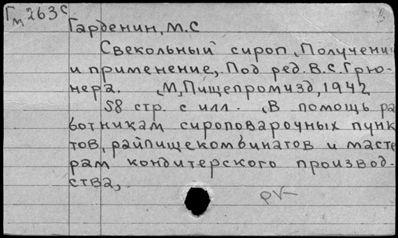 Гм 263с
Гарденин, М.С
Свекольный сироп, Получени
и применение,. Под ред. В.С. Грю-
нера. М, Пищепромизд, 1942
58 стр. с илл. В помощь ра
ботникам сироповарочных пунк
тов, райпищекомбинатов и масте
рам кондитерского производ-
ства,